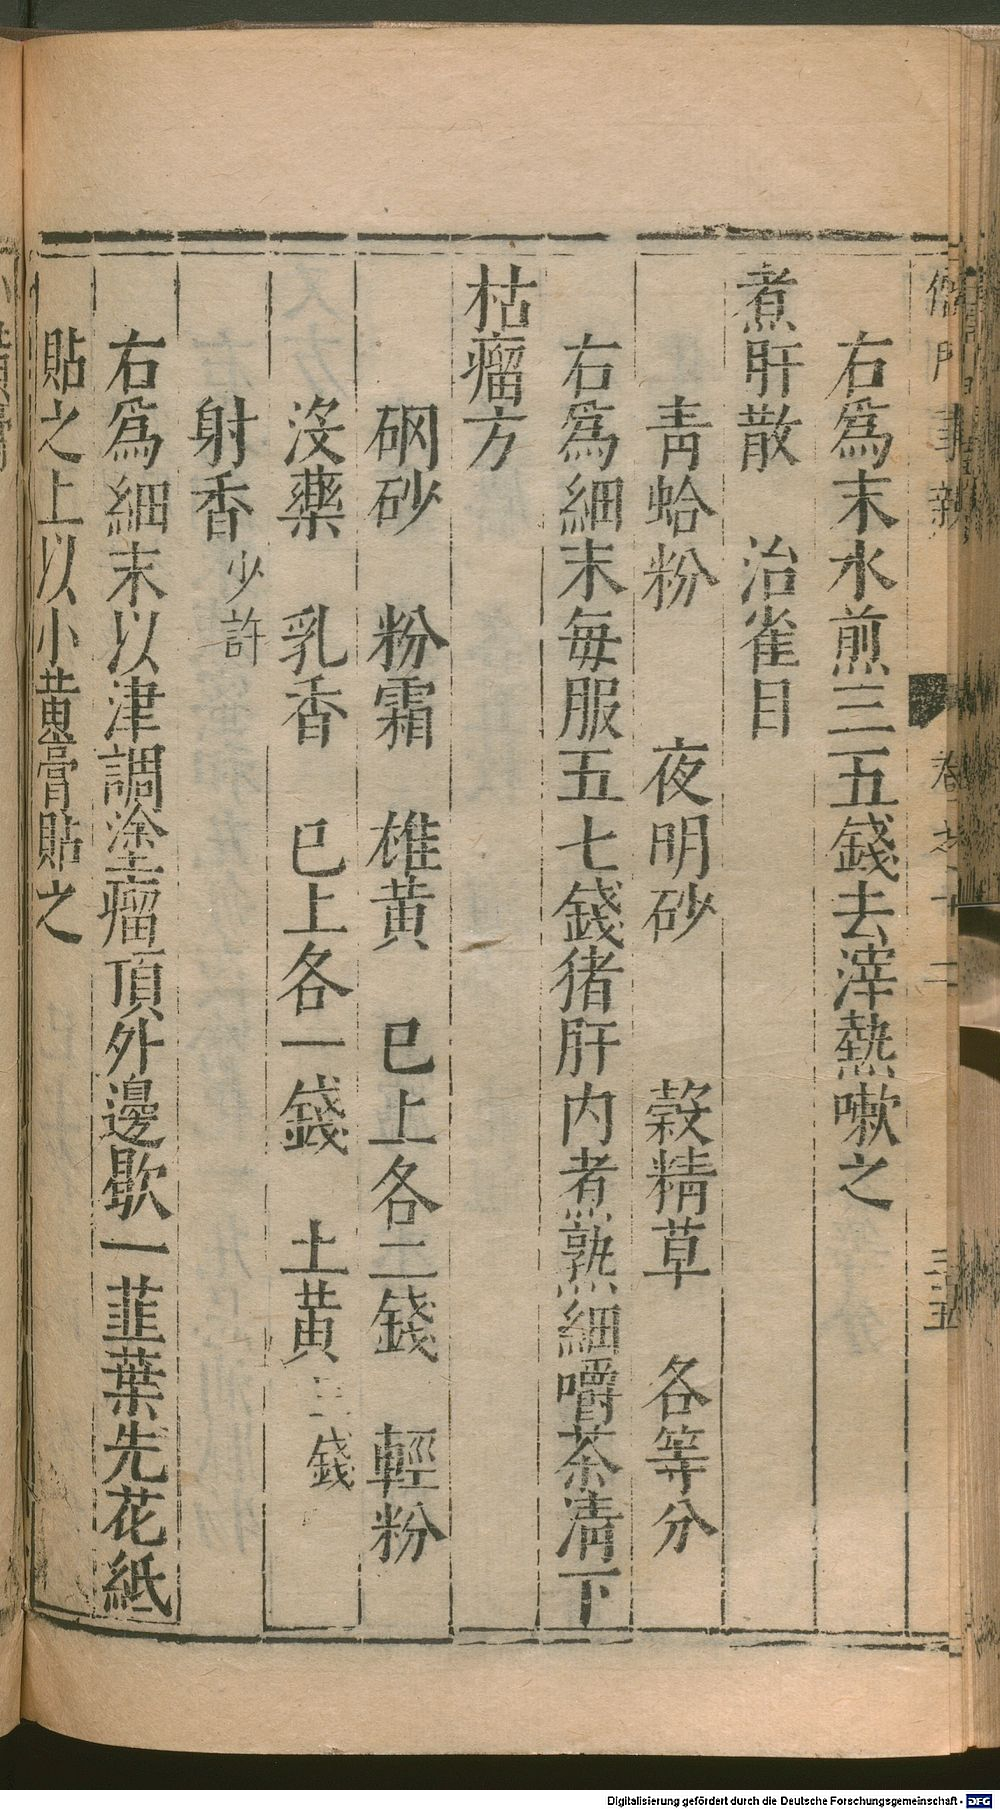 儒門事親
卷之十二
三五
右爲末水煎三五錢去滓熱嗽之
煮肝散 治雀目
青蛤粉 夜明砂 穀精草 各等分
右爲細末每服五七錢猪肝内煮熟細嚼茶清下
枯瘤方
硇砂 粉霜 雄黄 已上各二錢 輕粉
没藥 乳香 已上各一錢 土黄 三錢
射香 少許
右爲細末以津調塗瘤頂外邊歇一韮葉先花紙
貼之上以小黄膏貼之
Digitalisierung gefördert durch die Deutsche Forschungsgemeinschaft - DFG